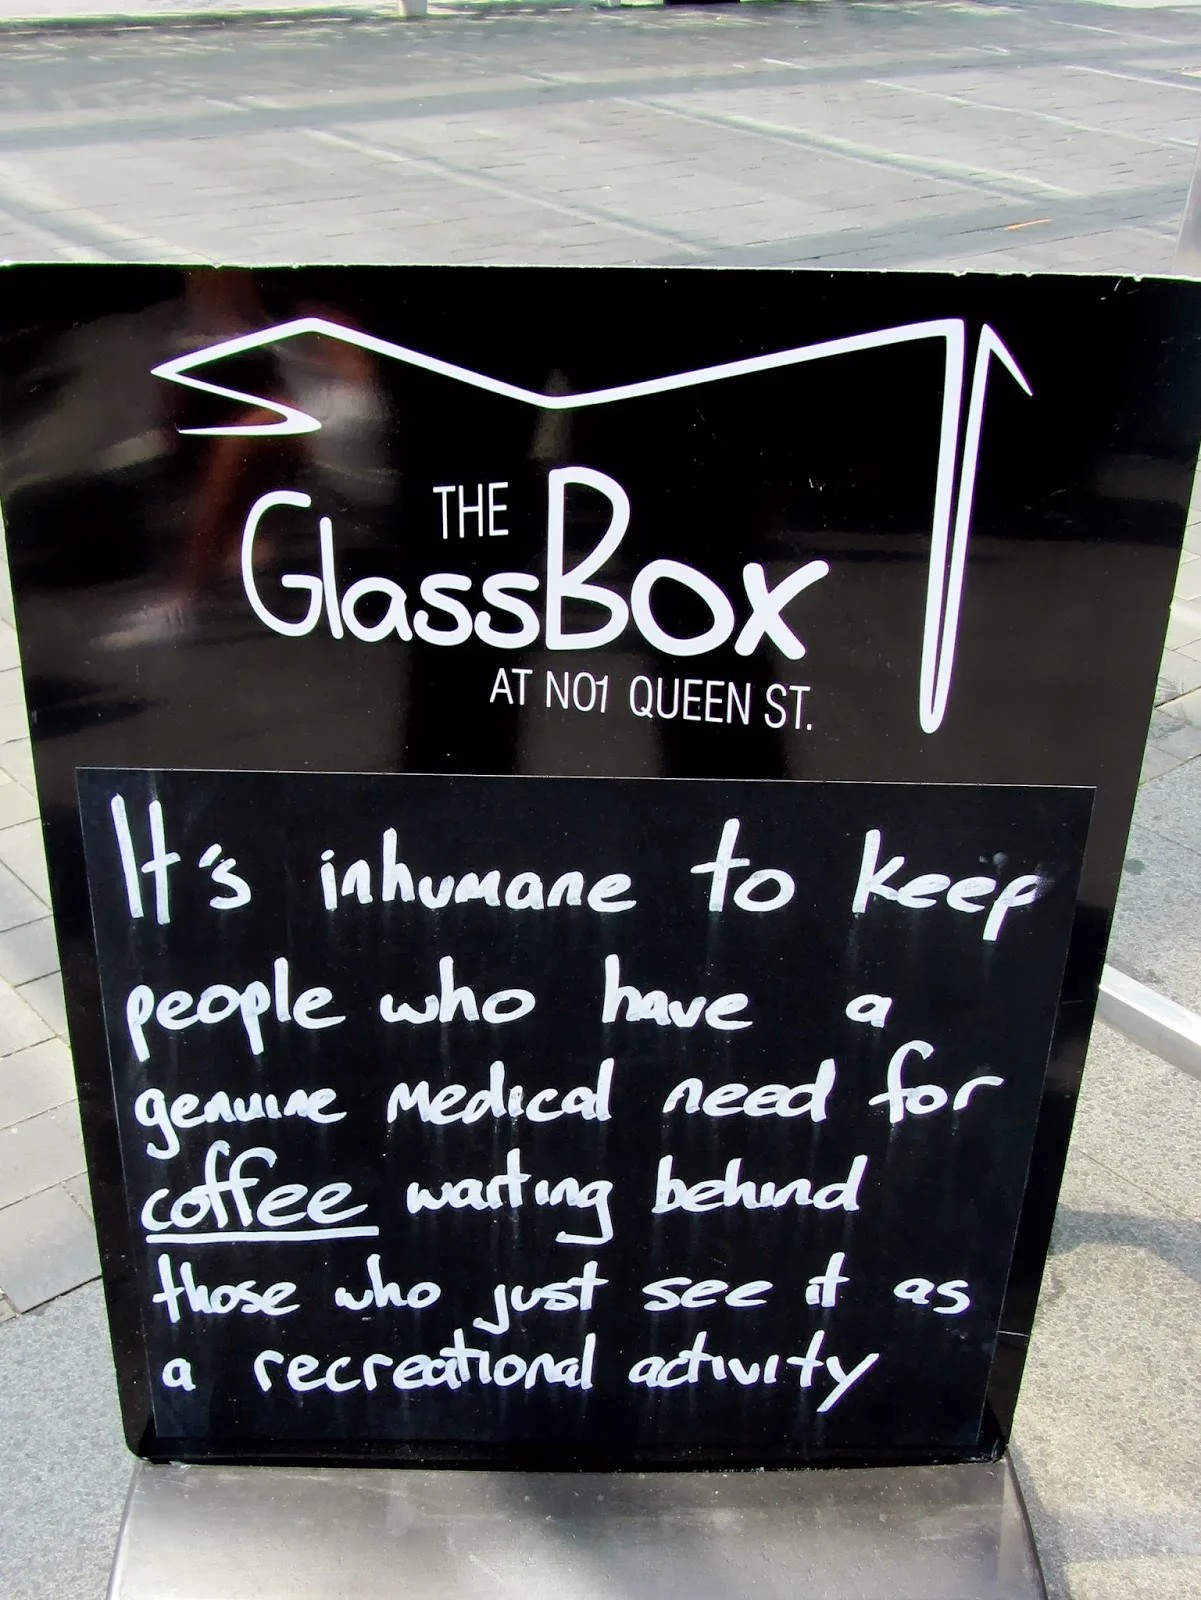 THE
GlassBox
AT NO1 QUEEN ST.
It's inhumane to keep
people who have a
genuine medical need for
coffee waiting behind
those who just see it as
a recreational activity